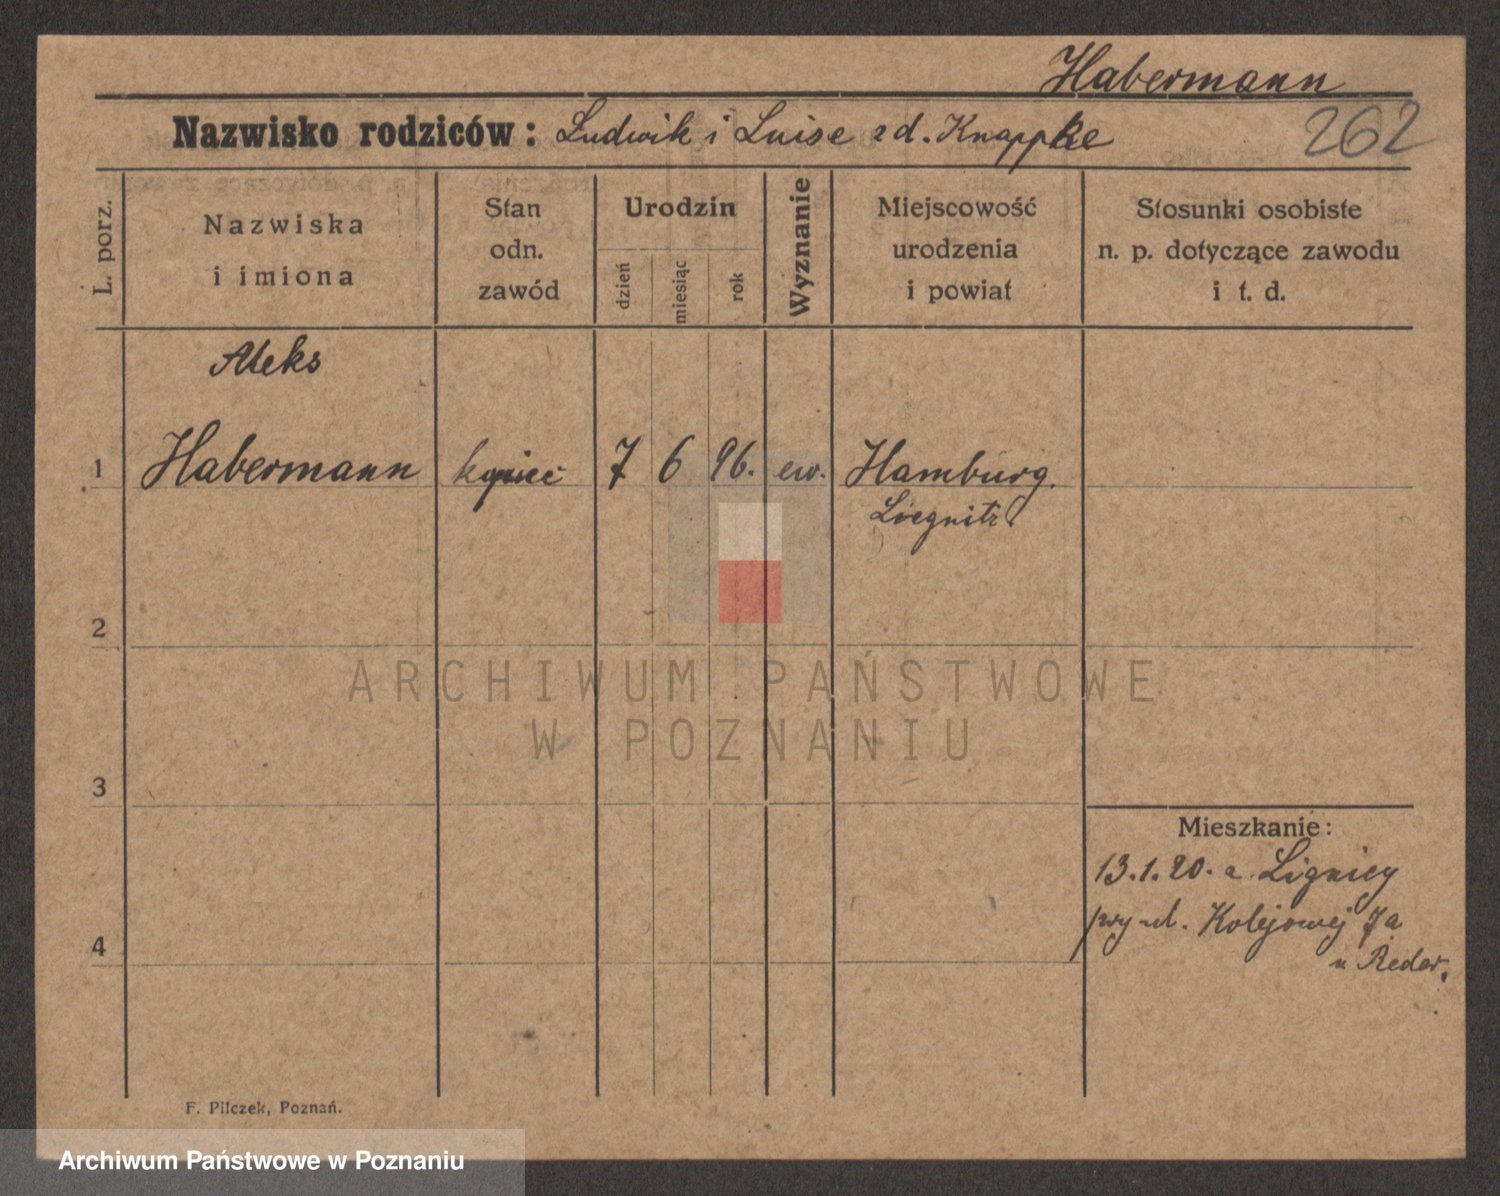 Habermann
262
Nazwisko rodziców: Ludwik i Luise zd. Knappke
L. porz.
Nazwiska
i imiona
Stan
odn.
zawód
Urodzin
dzień
miesiąc
rok
Wyznanie
Miejscowość
urodzenia
i powiat
Stosunki osobiste
n. p. dotyczące zawodu
i t. d.
Aleks
1 Habermann kupiec 7 6 96. ew. Hamburg.
Liegnitz.
2
ARCHIWUM PAŃSTWOWE
W POZNANIU
3
Mieszkanie:
13.1.20. z Lignicy
przy ul. Kolejowej 7a
4
u Reder.
F. Pilczek, Poznań.
Archiwum Państwowe w Poznaniu